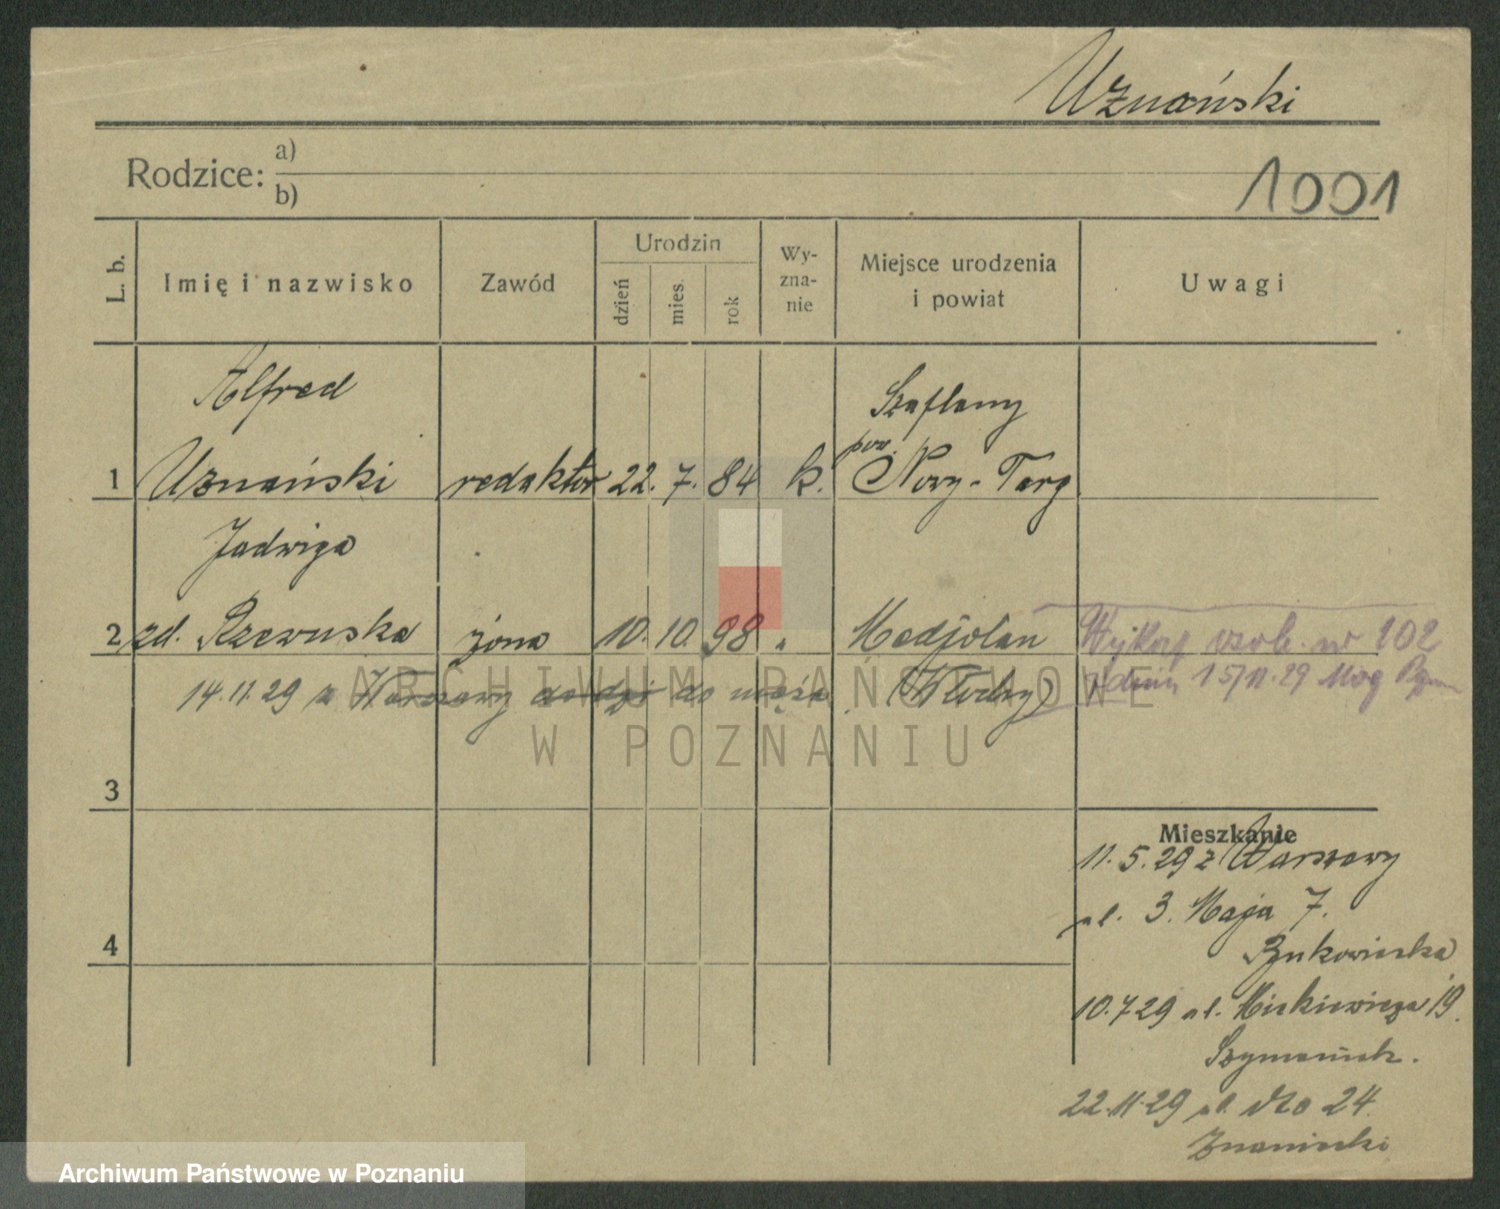 Uznański
Rodzice: a)
b)
1001
L. b.
Imię i nazwisko
Zawód
Urodzin
dzień
mies.
rok
Wy-
zna-
nie
Miejsce urodzenia
i powiat
Uwagi
Alfred
Szaflary
pow.
1 Uznański redaktor 22. 7. 84 k. Nowy-Targ
Jadwiga
2 zd. Rzewuska żona 10. 10. 98 " Medjolan
Wykaz osob. nr 102
14.11.29 z Warszawy do męża (Włochy)
z dnia 15/11.29 Mag
ARCHIWUM PAŃSTWOWE
W POZNANIU
3
Mieszkanie
11.5.29 z Warszawy
ul. 3. Maja 7.
4
10.7.29 ul. Mickiewicza 19.
Szymaniak.
22.11.29 ul. dto 24.
Znaniecki
Archiwum Państwowe w Poznaniu